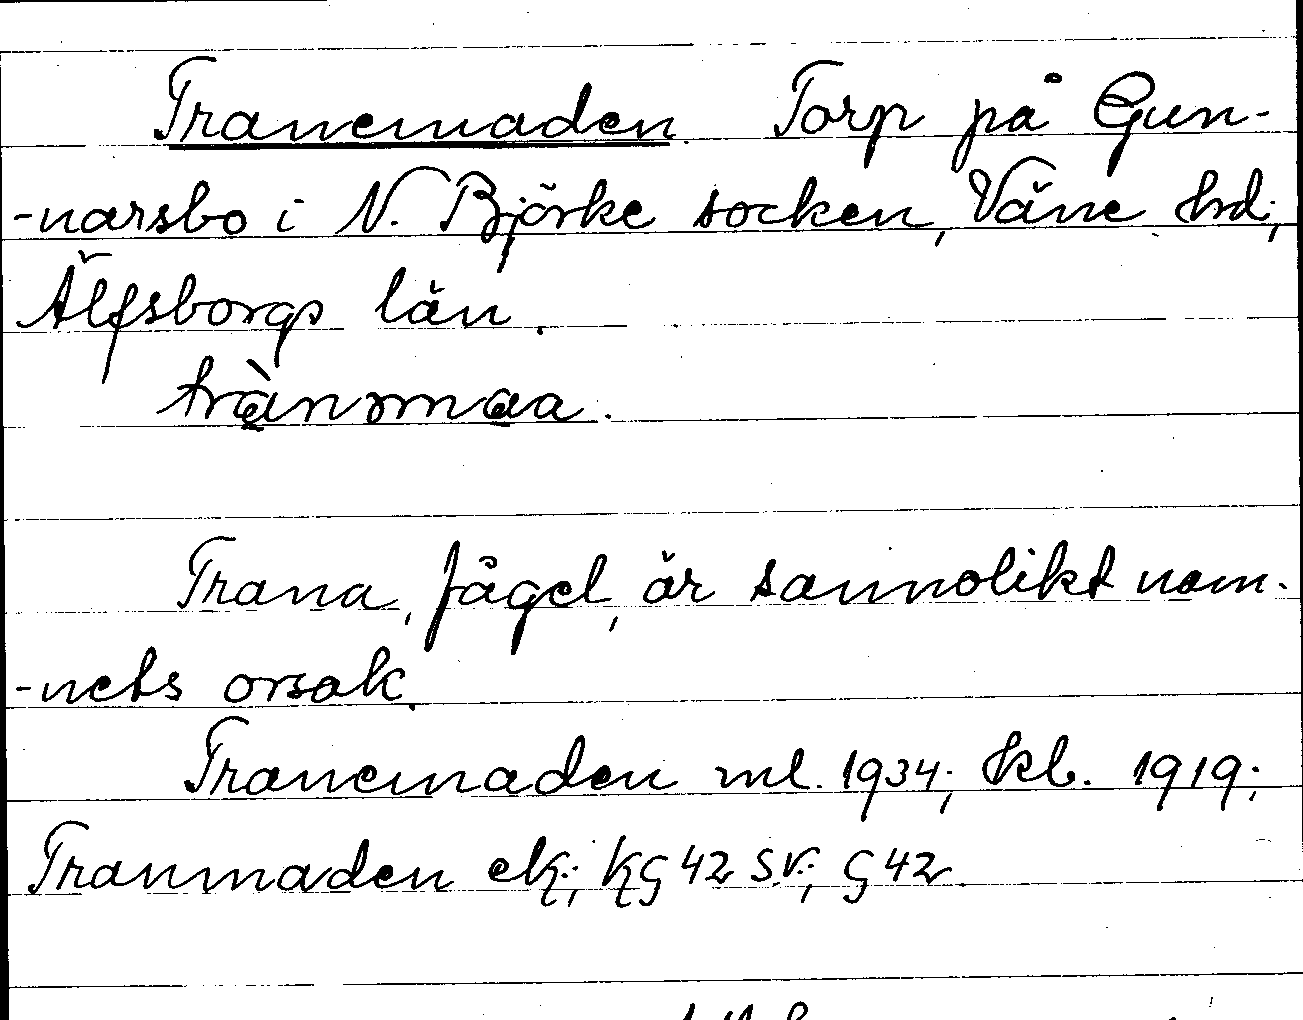 Tranemaden. Torp på Gun-
-narsbo i N. Björke socken, Väne hd;
Älfsborgs län.
Trana, fågel, är sannolikt nam-
-nets orsak.
Tranemaden ml. 1934; kb. 1919;
Tranmaden ek;; KG 42 s.v.; G 42